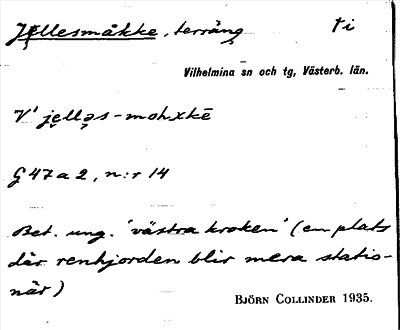 Jellesmåkke, terräng ti
Vilhelmina sn och tg, Västerb. län.
V' jęlləs-mohxkē
G 47 a 2, n:r 14
Bet. ung. 'västra kroken' (en plats
där renhjorden blir mera statio-
när)
BJÖRN COLLINDER 1935.